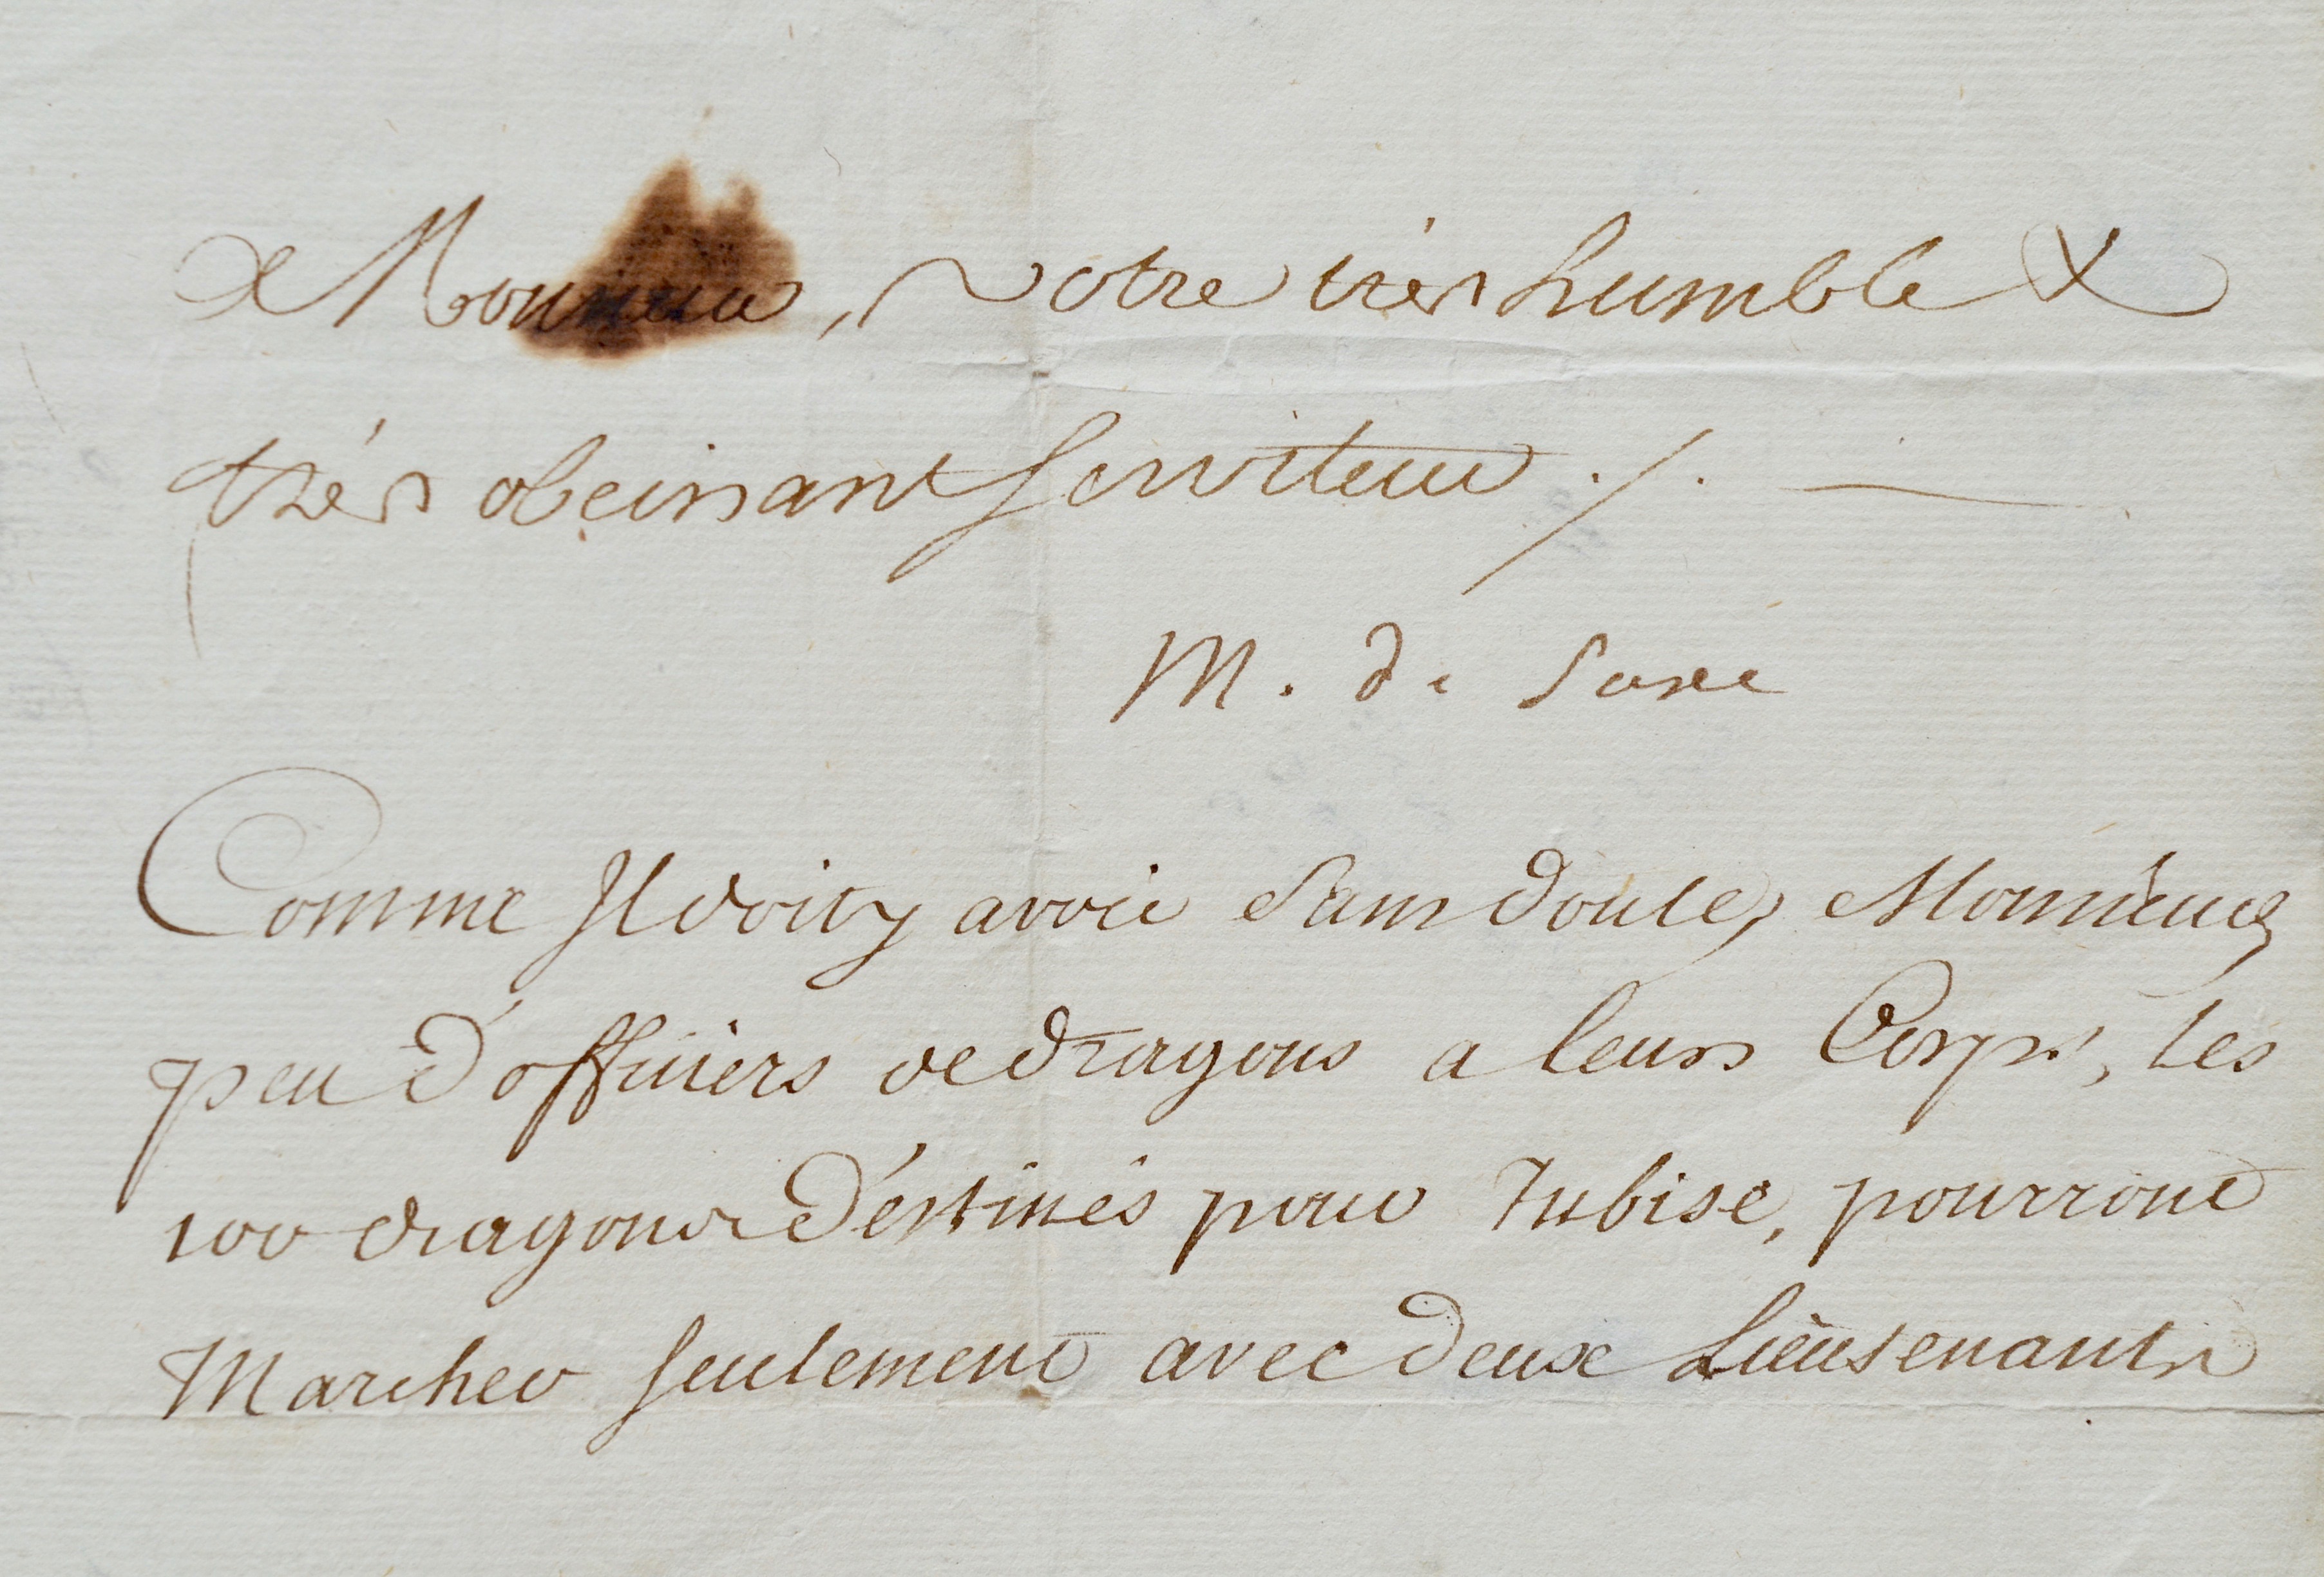 Monsieur, votre très humble &
très obeissant serviteur ./.
M. de Saxe
Comme Il doit y avoir sans doute, Monsieur,
peu d'officiers de dragons a leurs Corps, les
100 dragons déstinés pour Tubise, pourront
Marcher seulement avec deux Lieutenants